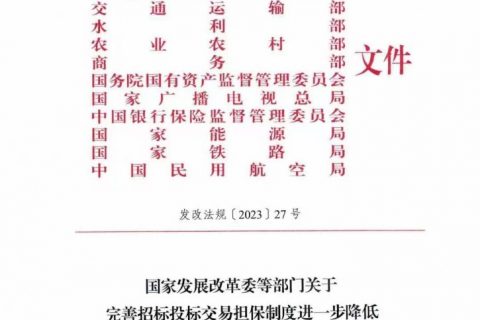 交通运输部
水利部
农业农村部
商务部
文件
国务院国有资产监督管理委员会
国家广播电视总局
中国银行保险监督管理委员会
国家能源局
国家铁路局
中国民用航空局
发改法规〔2023〕27号
国家发展改革委等部门关于
完善招标投标交易担保制度进一步降低